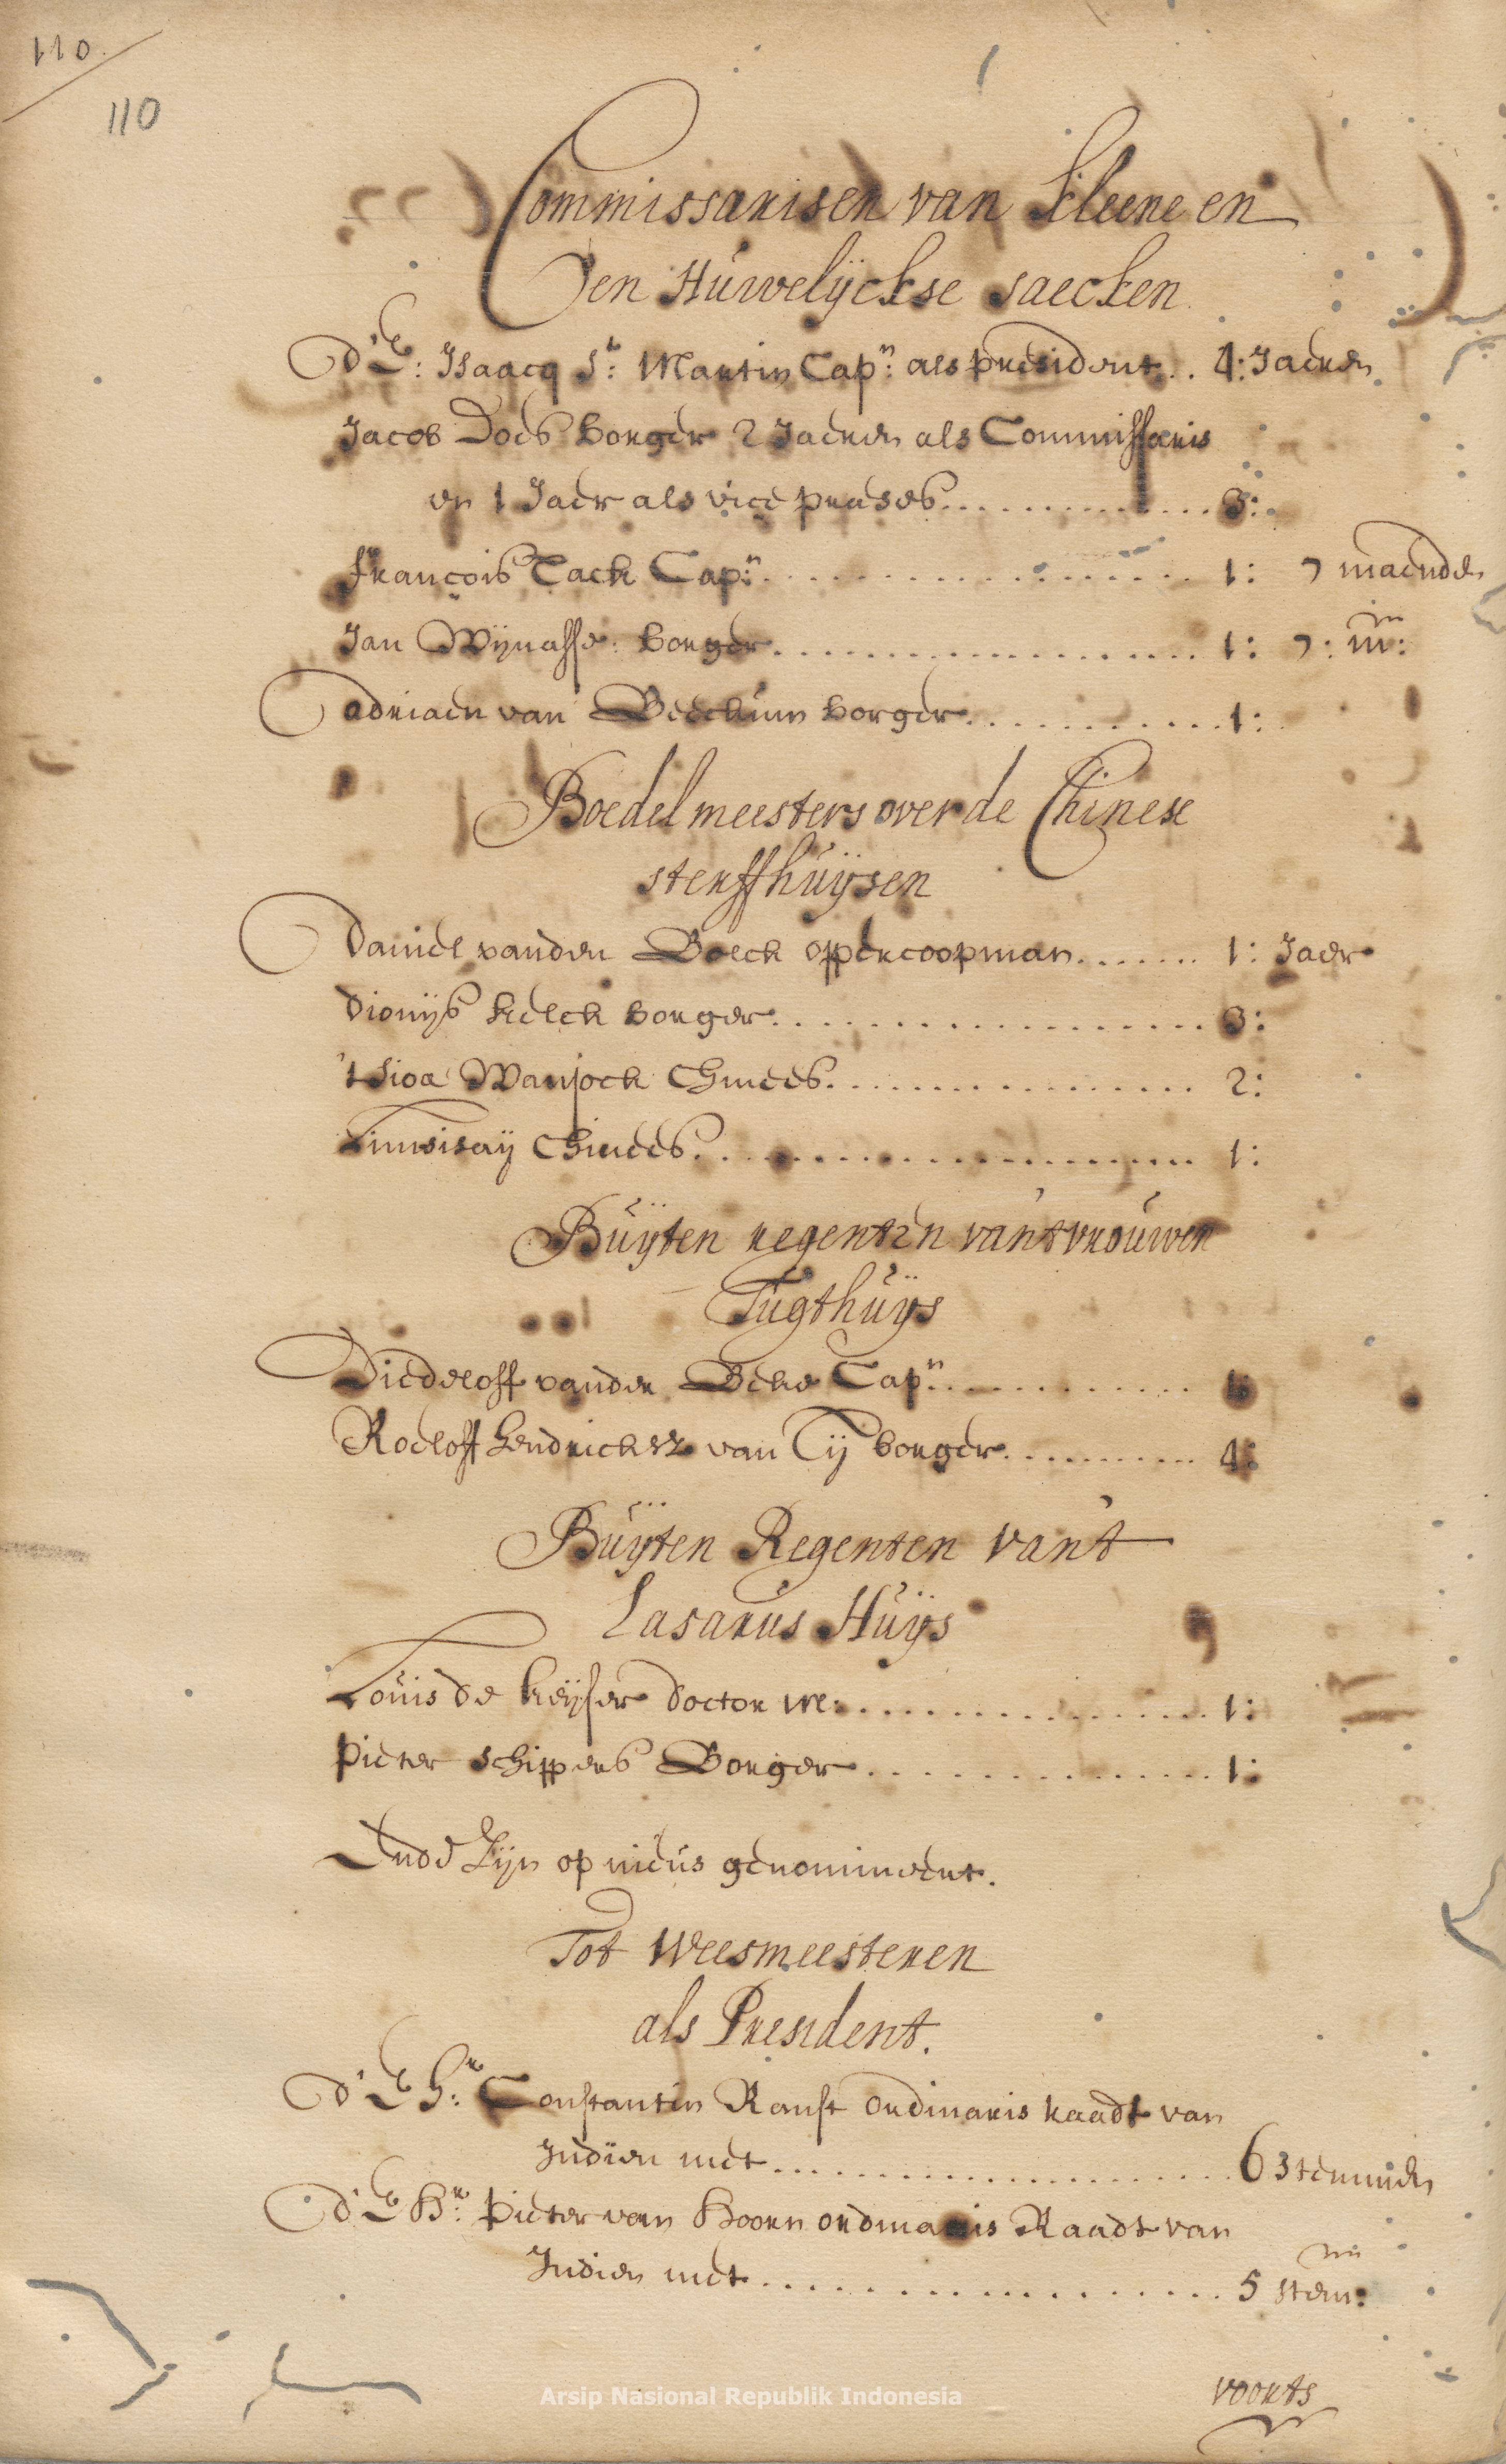 110
110
Commissarisen van kleene en
en Huwelÿckse saecken
d'E: Isaacq St: Martin Capn: als president.. 4: Jaeren
Jacob Does borger 2 Jaeren als Commissaris
en 1 Jaer als vice preses............. 3:
françois Tack Capn:................... 1: 7 maenden
Jan Wÿnasse: borger................... 1: 7: m:
adriaen van Beeckum borger............ 1:
Boedelmeesters over de Chinese
sterffhuÿsen
Daniel vanden Bolck oppercoopman....... 1: Jaer
Dionÿs kelck borger................... 3:
'tSioa Wanjock Chinees................. 2:
Limsisaÿ Chinees...................... 1:
Buÿten regenten van't vrouwen
Tugthuÿs
Diedeloff vander Beke Capn:............ 1:
Roeloff hendricksz van Tÿ borger.......... 4:
Buÿten Regenten van't
Lasarus Huÿs
Louis de keÿser doctor me:................ 1:
Pieter Schippers Borger............... 1:
Ende Zijn op nieus genomineert.
Tot Weesmeesteren
als President.
d'E Hr: Constantin Ranst ordinaris raadt van
Indïen met...................... 6 stemmen
d'E Hr: Pieter van Hoorn ordinaris Raadt van
Indien met................... 5 stem:
voorts
Arsip Nasional Republik Indonesia